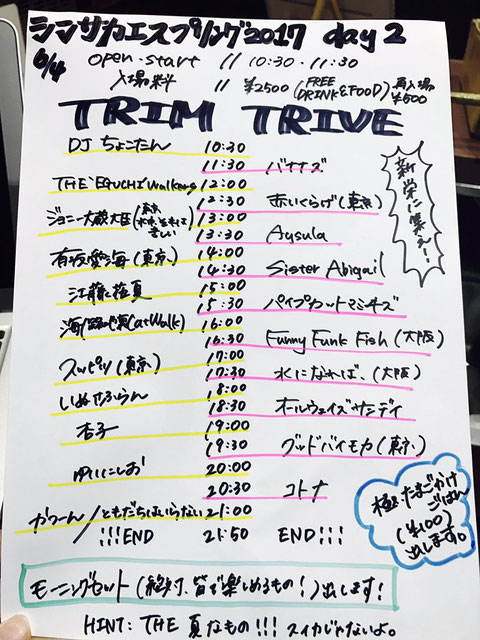 シンサカエスプリング2017 day 2
6/4 open・start // 10:30・11:30
入場料 // ¥2500 (FREE DRINK&FOOD) 再入場 ¥500
TRIM TRIVE
DJ ちょこたん 10:30
11:30 バナナズ
THE EGUCHI Walkers 12:00
12:30 赤いくらげ(東京)
ジョニー大蔵大臣(東京) 13:00
13:30 Aysula
有夜愛海(東京) 14:00
14:30 Sister Abigail
15:00
15:30 パイプカットマミーズ
CatWalk) 16:00
16:30 Funny Funk Fish (大阪)
スッピン(東京) 17:00
17:30 水になれば、(大阪)
しぬせふらん 18:00
18:30 オールウェイズサンデイ
杏子 19:00
19:30 グッドバイモカ(東京)
ゆいにしお 20:00
20:30 コトナ
かつーん/ともだちはいらない 21:00
!!!END 21:50 END!!!
新栄に集え〜!
極・たまごかけ
ごはん
(¥100)
出します。
モーニングセット(絶対、皆で楽しめるもの!)出します!
HINT: THE 夏なもの!!! スイカじゃないよ。